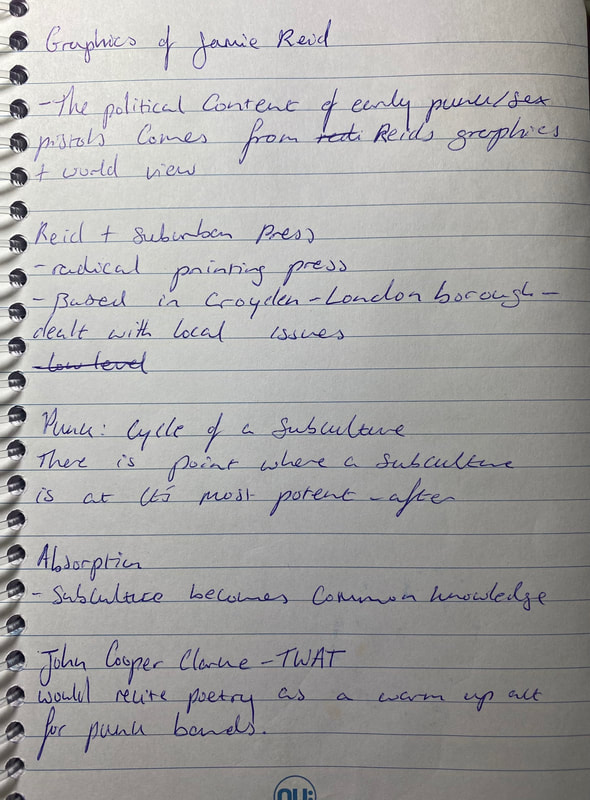 Graphics of Jamie Reid
- The political Content of early punk/sex
pistols Comes from Reids graphics
+ world view
Reid + Suburban Press
- radical printing press
- Based in Croyden - London borough -
dealt with local issues
- low level
Punk: Cycle of a Subculture
There is point where a subculture
is at it's most potent - after
Absorption
- Subculture becomes Common knowledge
John Cooper Clarke - TWAT
would recite poetry as a warm up act
for punk bands.